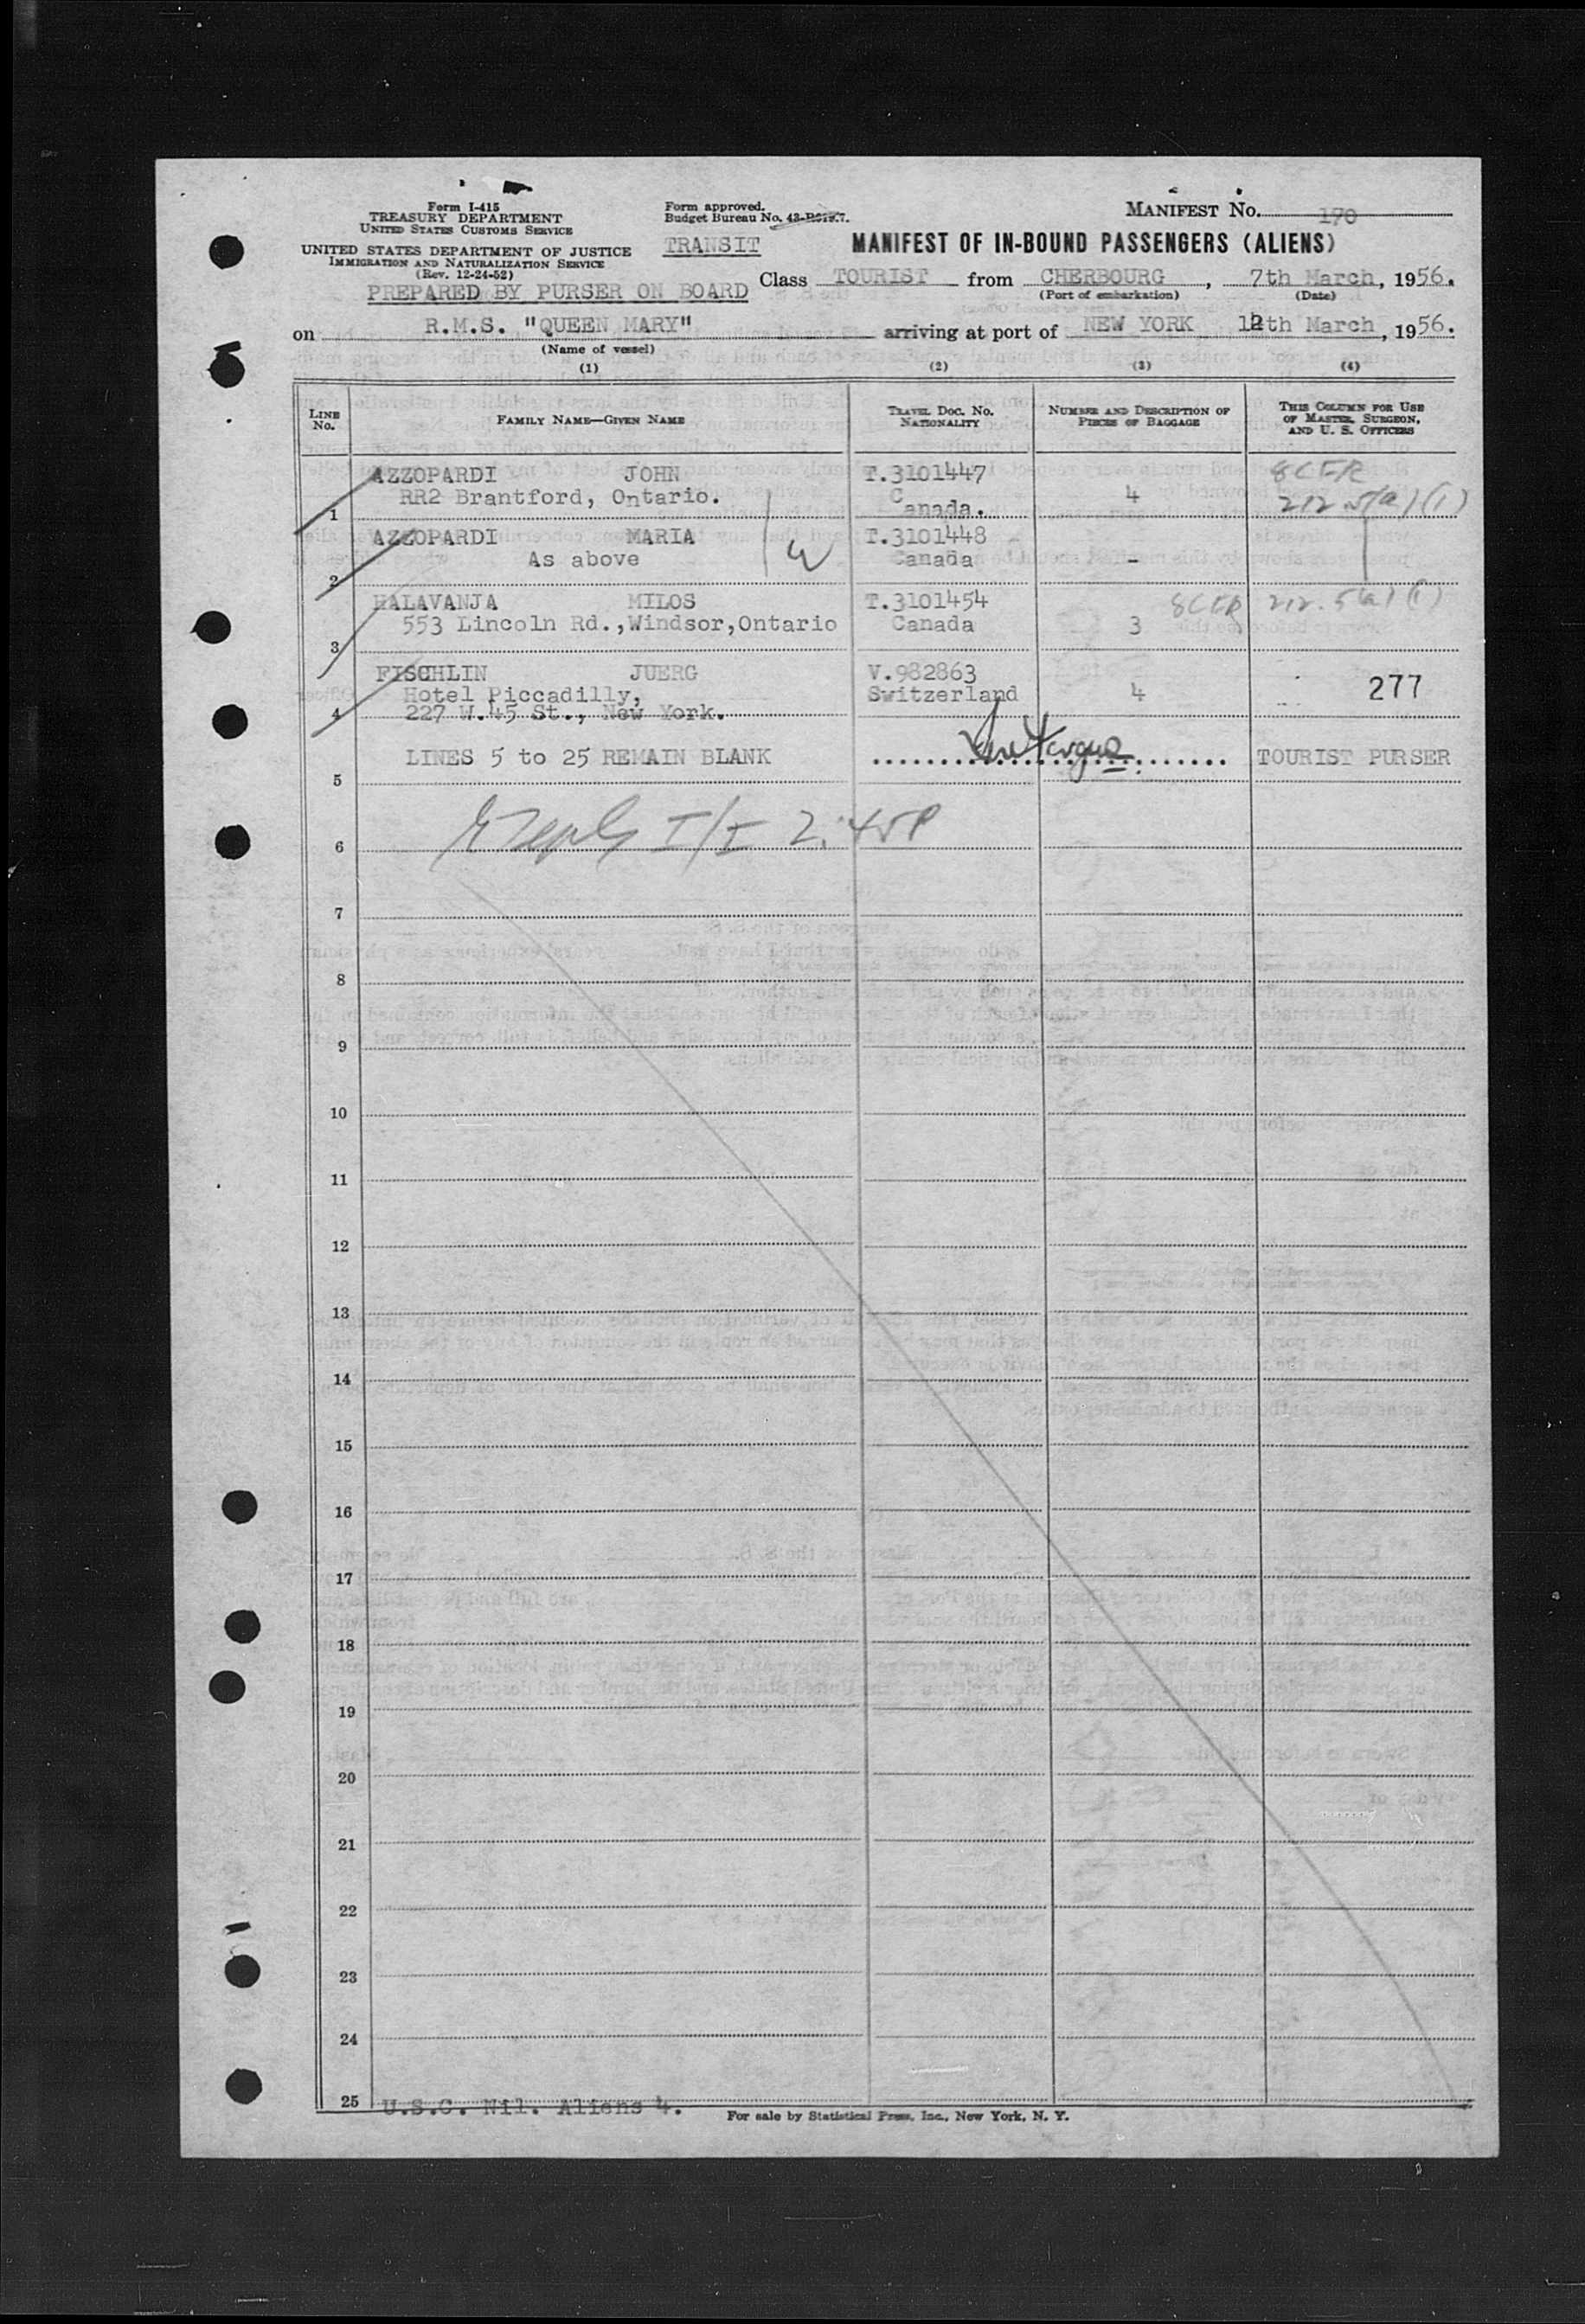 Form I-415
TREASURY DEPARTMENT
UNITED STATES CUSTOMS SERVICE
UNITED STATES DEPARTMENT OF JUSTICE
IMMIGRATION AND NATURALIZATION SERVICE
(Rev. 12-24-52)
PREPARED BY PURSER ON BOARD
Form approved.
Budget Bureau No. 43-
TRANSIT
MANIFEST NO. 170
MANIFEST OF IN-BOUND PASSENGERS (ALIENS)
Class TOURIST from CHERBOURG, 7th March, 1956.
(Port of embarkation) (Date)
on R.M.S. "QUEEN MARY" arriving at port of NEW YORK 12th March, 1956.
(Name of vessel)
(1) (2) (3) (4)
LINE NO. FAMILY NAME—GIVEN NAME TRAVEL DOC. NO. NATIONALITY NUMBER AND DESCRIPTION OF PIECES OF BAGGAGE THIS COLUMN FOR USE OF MASTER, SURGEON, AND U. S. OFFICERS
AZZOPARDI JOHN T.3101447 8CFR
RR2 Brantford, Ontario. Canada. 4 212.5(a)(1)
1
AZZOPARDI MARIA T.3101448
As above W Canada -
2
HALAVANJA MILOS T.3101454 8CFR 212.5(a)(1)
553 Lincoln Rd.,Windsor,Ontario Canada 3
3
FISCHLIN JUERG V.982863
Hotel Piccadilly, Switzerland 4 277
4 227 W.45 St., New York.
LINES 5 to 25 REMAIN BLANK TOURIST PURSER
5
I/I 2.45P
6
7
8
9
10
11
12
13
14
15
16
17
18
19
20
21
22
23
24
25 U.S.C. Nil. Aliens 4.
For sale by Statistical Press, Inc., New York, N. Y.